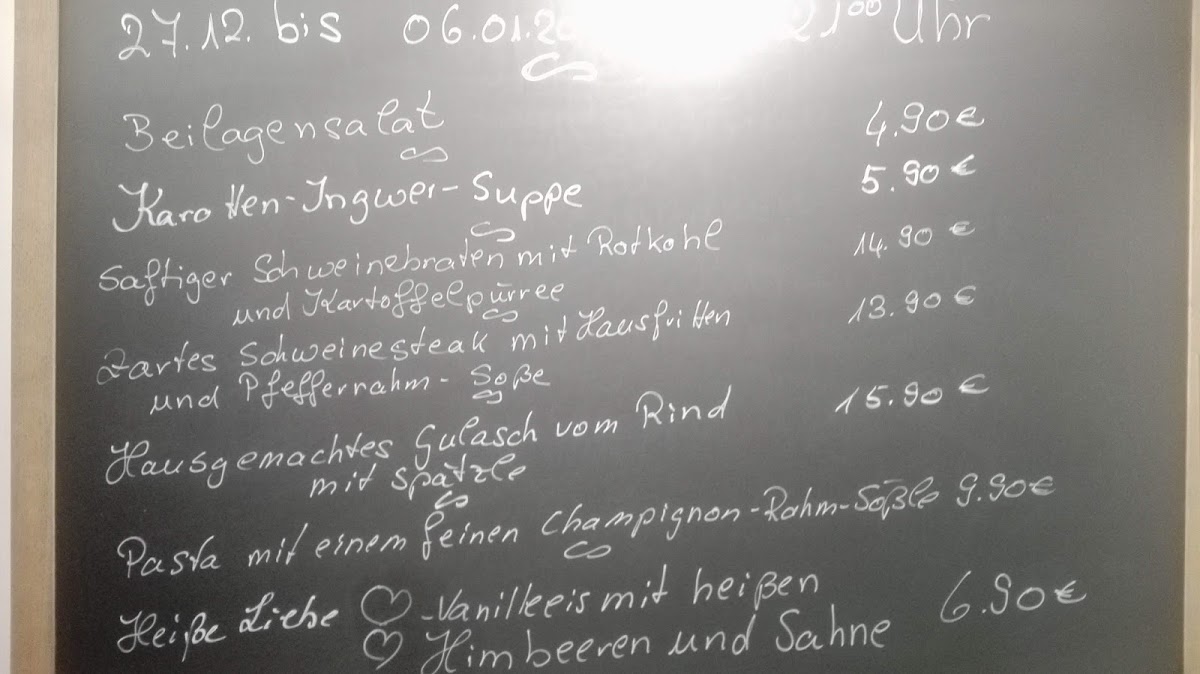 27.12. bis 06.01.20 21 00 Uhr
Beilagensalat 4.90€
Karotten-Ingwer-Suppe 5.90€
Saftiger Schweinebraten mit Rotkohl 14.90€
und Kartoffelpürree
Zartes Schweinesteak mit Hausfritten 13.90€
und Pfefferrahm-Soße
Hausgemachtes Gulasch vom Rind 15.90€
mit Spätzle
Pasta mit einem feinen Champignon-Rahm-Sößle 9.90€
Heiße Liebe ♡ -Vanilleeis mit heißen 6.90€
♡ Himbeeren und Sahne